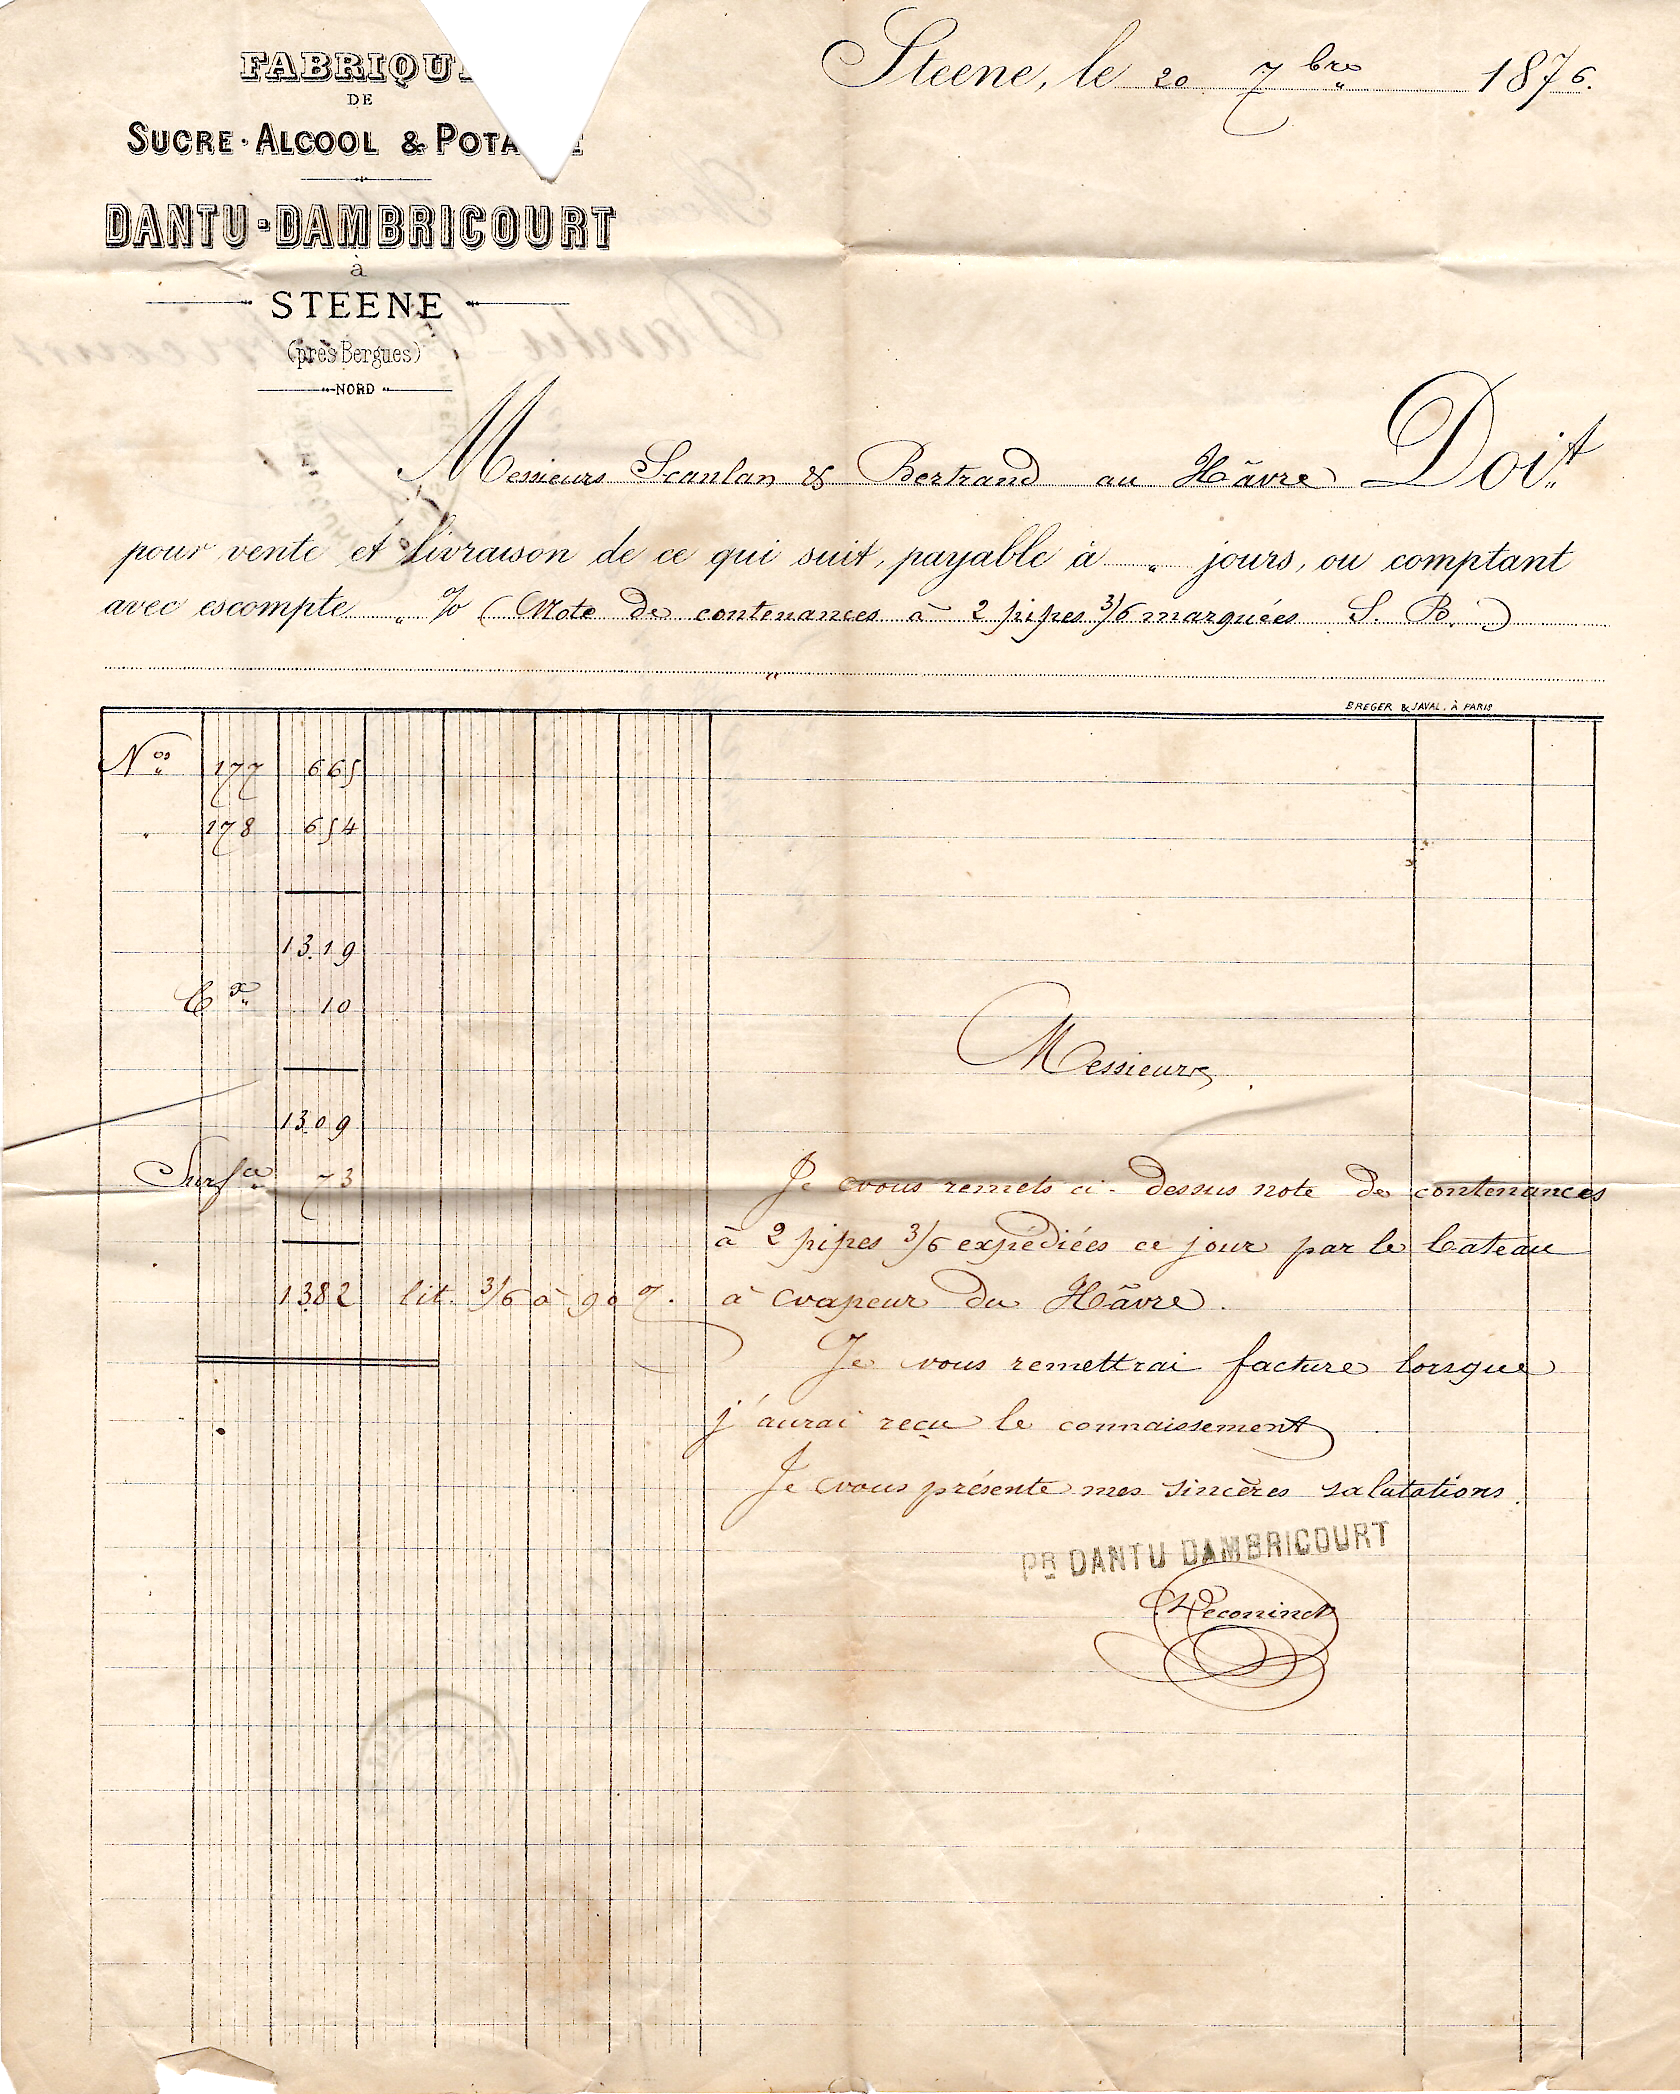 FABRIQU
DE
SUCRE · ALCOOL & POTA E
DANTU-DAMBRICOURT
à
STEENE
(près Bergues)
NORD
Steene, le 20 7bre 1876.
Messieurs Scanlan & Bertrand au Hâvre Doit
pour vente et livraison de ce qui suit, payable à " jours, ou comptant
avec escompte " % (Note de contenances à 2 pipes 3/6 marquées S. B.)
"
BREGER & JAVAL, À PARIS
Nos 177 665
" 178 654
1319
10
1309
Surfce 73
1382 lit. 3/6 à 90 %.
Messieurs,
Je vous remets ci-dessus note de contenances
à 2 pipes 3/6 expédiées ce jour par le bateau
à vapeur du Hâvre.
Je vous remettrai facture lorsque
j'aurai reçu le connaissement
Je vous présente mes sincères salutations.
PR DANTU DAMBRICOURT
Deconinck